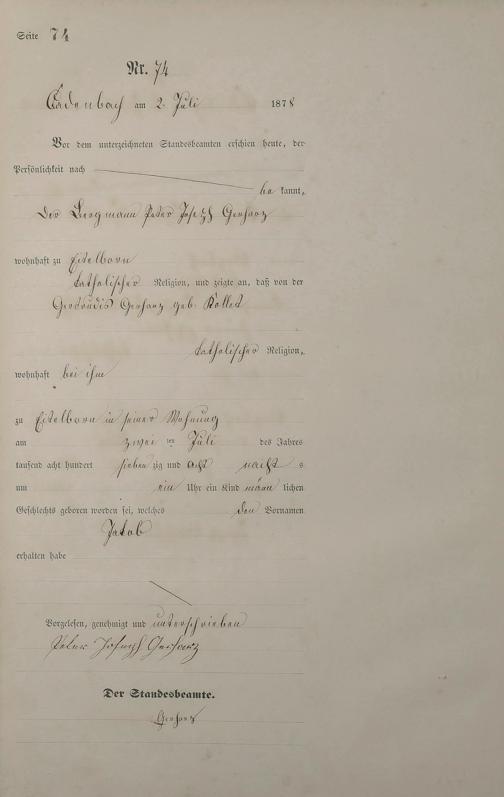 Seite 74
Nr. 74
Cadenbach am 2. Juli 1878
Vor dem unterzeichneten Standesbeamten erschien heute, der
Persönlichkeit nach
be kannt,
der Bergmann Peter Joseph Gerharz
wohnhaft zu Eitelborn
katholischer Religion, und zeigte an, daß von der
Gertrudis Gerharz geb.
katholischer Religion,
wohnhaft bei ihm
zu Eitelborn in seiner Wohnung
am zwei ten Juli des Jahres
tausend acht hundert sieben zig und acht nacht s
um ein Uhr ein Kind männ lichen
Geschlechts geboren worden sei, welches den Vornamen
Jakob
erhalten habe
Vorgelesen, genehmigt und unterschrieben
Peter Joseph Gerharz
Der Standesbeamte.
Gerharz